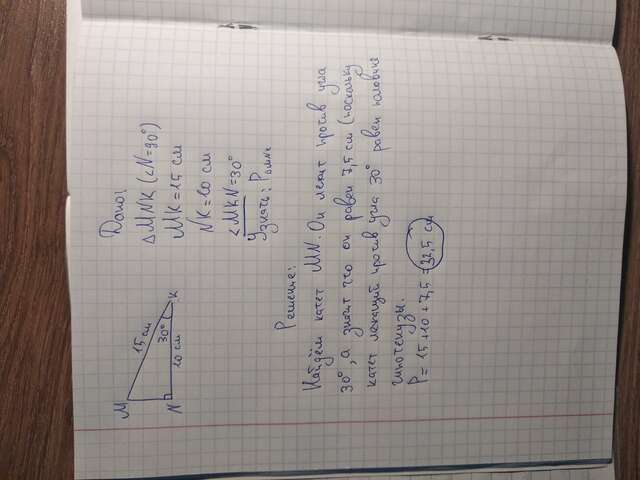 Дано:
△MNK (∠N=90°)
MK = 15 см
NK = 10 см
∠MKN = 30°
Узнать: P△MNK
M
15 см
30°
K
N
10 см
Решение:
Найдём катет MN. Он лежит против угла
30°, а значит что он равен 7,5 см (поскольку
катет лежащий против угла 30° равен половине
гипотенузы.
P = 15+10+7,5 = 32,5 см